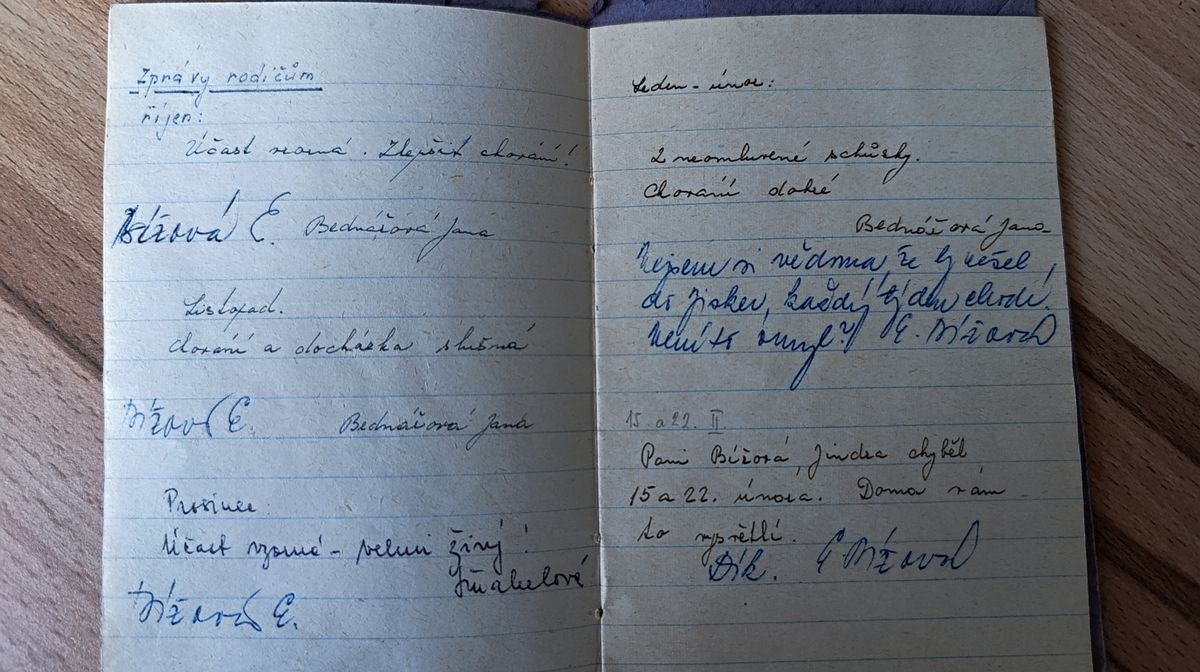 Zprávy rodičům
říjen:
Účast vzorná. Zlepšit chování!
Bížová E. Bednářová Jana
Listopad.
Chování a docházka slušná
Bížová E. Bednářová Jana
Prosinec:
Účast vzorná - velmi živý!
Bížová E.
Leden - únor:
2 neomluvené schůzky.
Chování dobré
Bednářová Jana
Nejsem si vědoma, že by nešel
do Jisker, každý týden chodí.
Není to omyl? E. Bížová
15. a 22. II
Paní Bížová, Jindra chyběl
15 a 22. února. Doma vám
to vysvětlí.
Dík. E Bížová